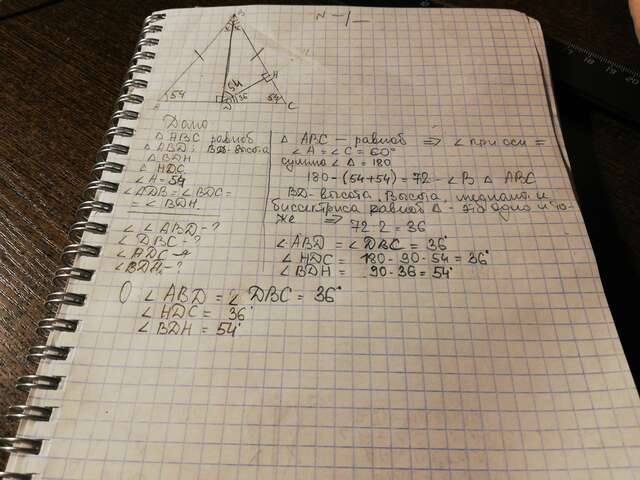 N -1-
B
54
H
54
36
54
D
C
Дано
△ ABC равноб
△ ABD; BD-высота
△ BDH
△ HDC
∠A = 54
∠ADB = ∠BDC =
= ∠BDH.
∠ ∠ABD - ?
∠ DBC - ?
∠ ADC
∠BDH - ?
△ ABC - равноб ⇒ ∠ при осн =
∠A = ∠C = 60°
сумма ∠ △ = 180
180 - (54+54) = 72 - ∠B △ ABC
BD- высота. Высота, медиана и
биссектриса равноб △ - это одно и то-
же ⇒
72 : 2 = 36
∠ABD = ∠DBC = 36°
∠ HDC = 180 - 90 - 54 = 36°
∠BDH = 90 - 36 = 54°
О ∠ ABD = ∠ DBC = 36°
∠HDC = 36°
∠ BDH = 54°